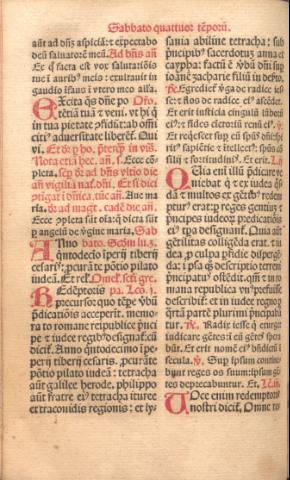 Sabbato quattuor tēporū.
aūt ad dn̄s aspiciā: t expectabo
deū saluatorē meū. Ad bn̄s an̄
Ec q̄ facta est vox salutatiōis
tue ī aurib⁹ meis: exultauit in
gaudio īfans ī vtero meo alla.
Excita qs dn̄e po Oro.
tētiā tuā t veni. vt hi q̄
in tua pietate ꝯfidūt. ab om̄i
citi⁹ aduersitate liberēt. Qui
vi.
Nota etiā hec. an̄. Ecce cō-
pleta.
an̄ vigiliā nat. dn̄i. Et si dici
Aue ma
ria. ad magt. cade die. an̄.
Ecce ꝯpleta sūt oīa: q̄ dicta sūt
ꝑ angelū de v̄gine maria. Sab
Anno bato. Scd̄m lu. 3.
quītodecio īperij tiberij
cesaris: ꝓcurāte pōtio pilato
iudeā. Et rel̄. Omel̄. scti gre.
Redēptoris pa. Lec. j.
precursor quo tēpe v̄bū
p̄dicatiōis acceperit. memo-
rato romane reipublice p̄nci
pe t iudee regib⁹ designat̄: cū
dicit̄. Anno quītodecimo im-
perij tiberij cesaris. ꝓcurāte
pōtio pilato iudeā: tetracha
aūt galilee herode. philippo
aūt fratre ei⁹ tetrachaituree
et traconidis regionis: et lys
sania abiline tetracha: sub
p̄ncipib⁹ sacerdotū anna et
caypha: factū ē v̄bū dn̄i sup
ioānē zacharie filiū in deſto.
Egrediet̄ v̄ga de radice ies
se: t flos de radice ei⁹ ascēdet.
Et erit iusticia cingulū lūborū
ei⁹: t fides cīctoriū renū ei⁹.
Et reqescet sup eū sp̄us dn̄i: sp̄s
sapiētie t intellect⁹: sp̄us cō
silij t fortitudinis. Et erit.
Quia enī illū p̄dicare ve
niebat q̄ t ex iudea q̄s
dā t multos ex gētib⁹ redem
ptur⁹ erat: ꝑ reges gentiū t
p̄ncipes iudeorum p̄dicatiōis
ei⁹ tp̄a designant̄. Quia aūt
gētilitas colligēda erat. t iu
dea ꝓ culpa ꝑfidie dispergē
da: ipsa q̄ descriptio terreni
p̄ncipatus ostēdit. qm̄ t in ro
mana republica vn⁹ prefuisse
describit̄: et in iudee regno ꝑ
q̄rtā partē plurimi p̄ncipabā
tur. Radix iesse q̄ exurget
iudicare gētes: ī eū gētes spera
būt. Et erit nomē ei⁹ bn̄dictū ī
secula. Sup ipsum contine-
bunt reges os suum: ipsum gē
tes deprecabuntur. Et.
Voce enim redemptoris
nostri dicit̄. Omne ro